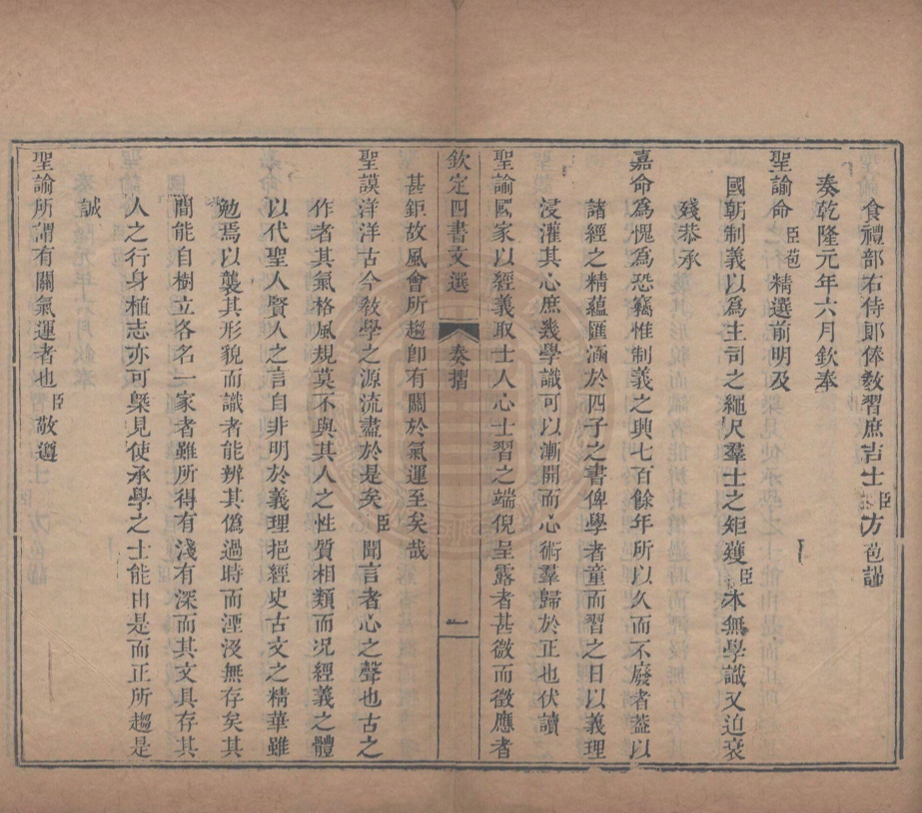 食禮部右侍郎俸教習庶吉士臣方苞謹
奏乾隆元年六月欽奉
聖諭命臣苞精選前明及
國朝制義以為主司之繩尺羣士之矩矱臣本無學識又迫衰
殘恭承
嘉命為愧為恐竊惟制義之興七百餘年所以久而不廢者蓋以
諸經之精蘊匯涵於四子之書俾學者童而習之日以義理
浸灌其心庶幾學識可以漸開而心術羣歸於正也伏讀
聖諭國家以經義取士人心士習之端倪呈露者甚微而徵應者
欽定四書文選 奏摺 一
甚鉅故風會所趨卽有關於氣運至矣哉
聖謨洋洋古今教學之源流盡於是矣臣聞言者心之聲也古之
作者其氣格風規莫不與其人之性質相類而况經義之體
以代聖人賢人之言自非明於義理挹經史古文之精華雖
勉焉以襲其形貌而識者能辨其僞過時而湮沒無存矣其
間能自樹立各名一家者雖所得有淺有深而其文具存其
人之行身植志亦可槩見使承學之士能由是而正所趨是
誠
聖諭所謂有關氣運者也臣敬遵